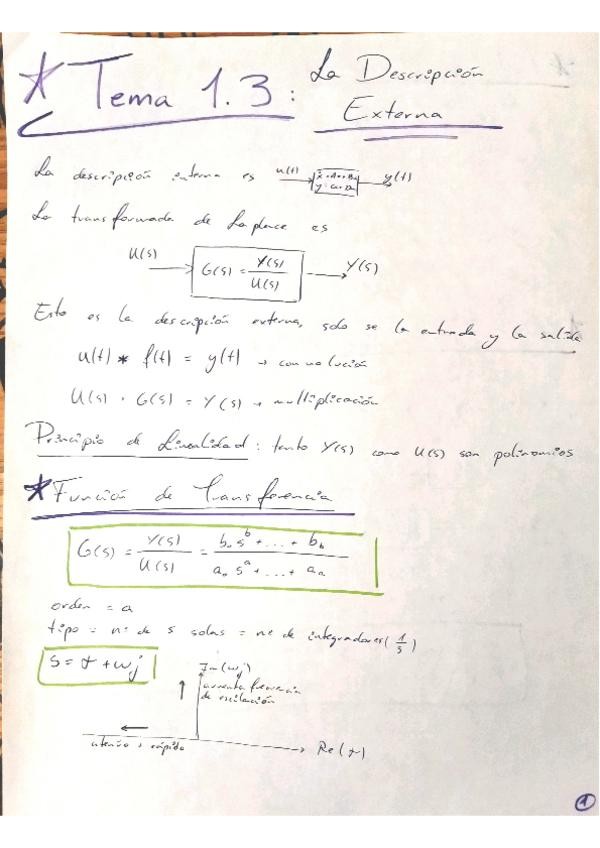 * Tema 1.3: La Descripción
Externa
La descripción interna es u(t) → → y(t)
La transformada de Laplace es
U(s) → G(s) = Y(s)/U(s) → Y(s)
Esto es la descripción externa, solo se la entrada y la salida
u(t) * f(t) = y(t) → convolución
U(s) · G(s) = Y(s) → multiplicación
Principio de Linealidad: tanto Y(s) como U(s) son polinomios
* Función de Transferencia
G(s) = Y(s)/U(s) = (b₀ s^b + ... + b_b)/(a₀ s^a + ... + a_a)
orden = a
tipo = nº de s solas = nº de integradores (1/s)
s = σ + ωj
Im(ωj)
↑ aumenta frecuencia
de oscilación
←
rápido
Re(σ)
1